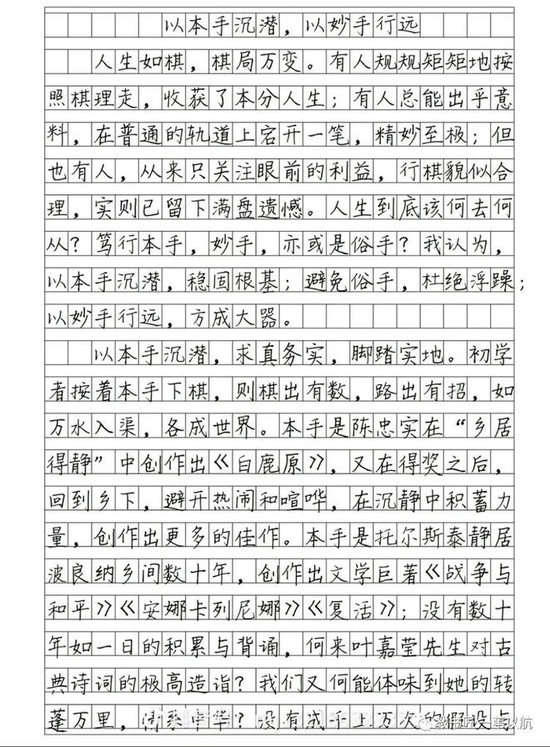 以本手沉潜，以妙手行远
人生如棋，棋局万变。有人规规矩矩地按
照棋理走，收获了本分人生；有人总能出乎意
料，在普通的轨道上宕开一笔，精妙至极；但
也有人，从来只关注眼前的利益，行棋貌似合
理，实则已留下满盘遗憾。人生到底该何去何
从？笃行本手，妙手，亦或是俗手？我认为，
以本手沉潜，稳固根基；避免俗手，杜绝浮躁；
以妙手行远，方成大器。
以本手沉潜，求真务实，脚踏实地。初学
者按着本手下棋，则棋出有数，路出有招，如
万水入渠，各成世界。本手是陈忠实在“乡居
得静”中创作出《白鹿原》，又在得奖之后，
回到乡下，避开热闹和喧哗，在沉静中积蓄力
量，创作出更多的佳作。本手是托尔斯泰静居
波良纳乡间数十年，创作出文学巨著《战争与
和平》《安娜卡列尼娜》《复活》；没有数十
年如一日的积累与背诵，何来叶嘉莹先生对古
典诗词的极高造诣？我们又何能体味到她的转
蓬万里，？没有成千上万次的假设与